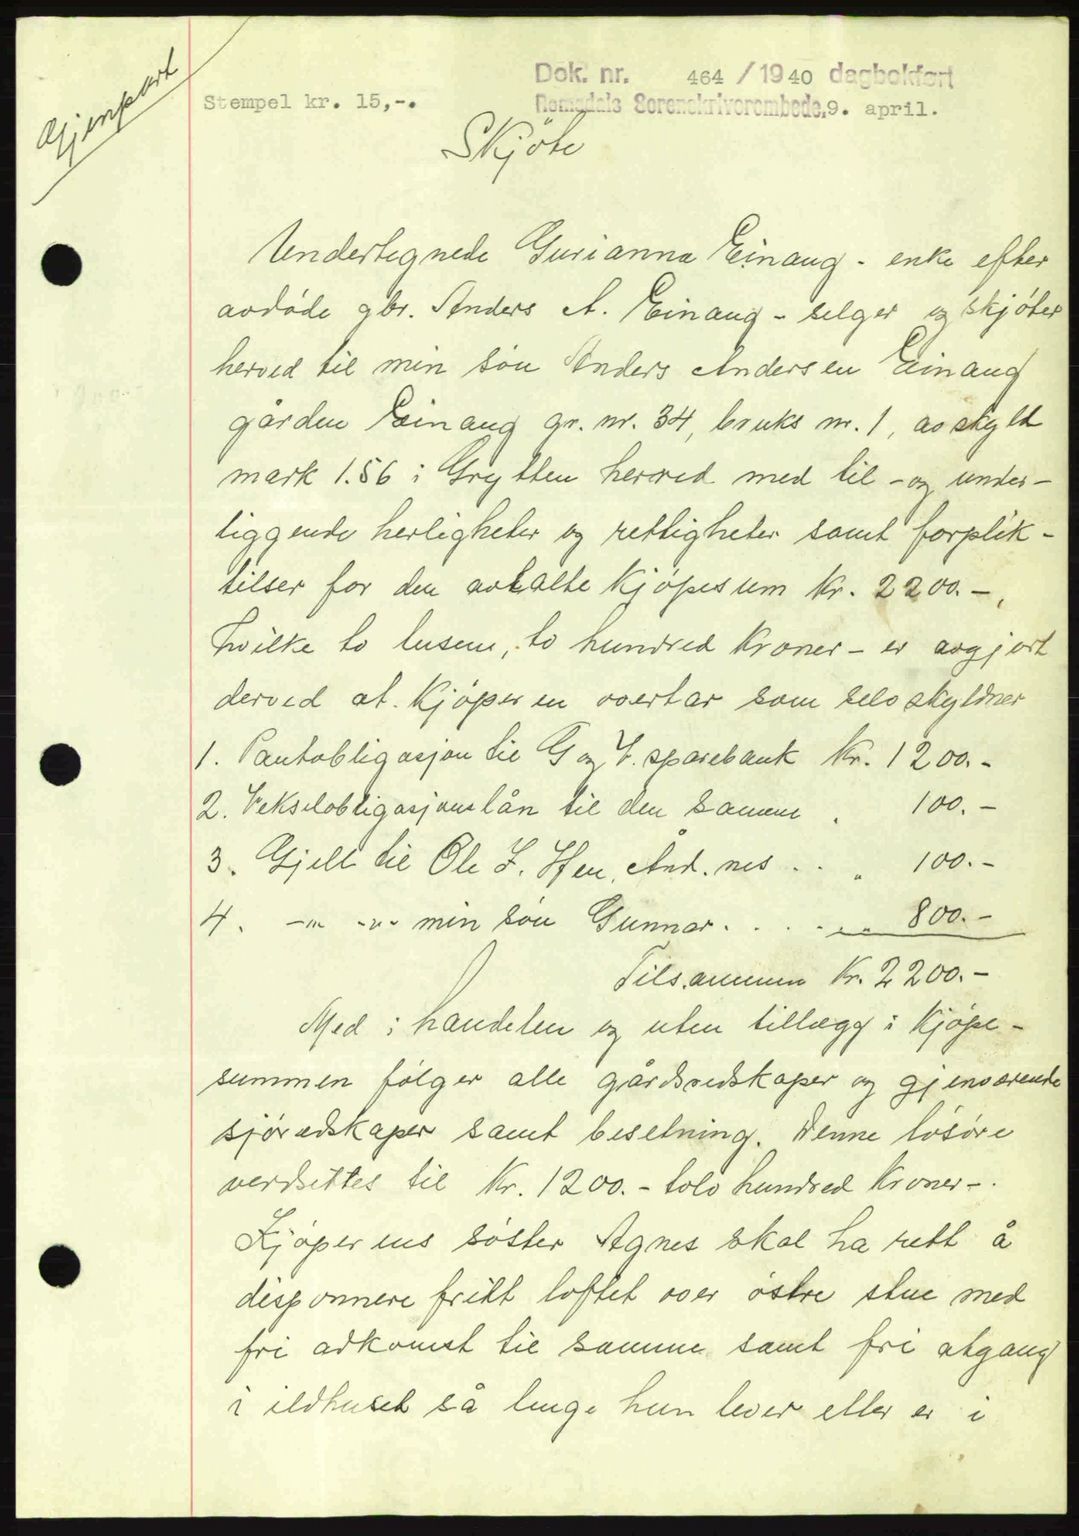 Gjenpart
Dok. nr. 464 / 1940 dagbokført
Stempel kr. 15,-. Romsdals Sorenskriverembede, 9. april.
Skjöte
Undertegnede Gurianna Einang - enke efter
avdöde gbr. Anders A. Einang - selger og skjöter
herved til min sön Anders Andersen Einang
gården Einang gr. nr. 34, bruks nr. 1, av skyld
mark 1.56 i Grytten herred med til - og under-
liggende herligheter og rettigheter samt forplik-
tilser for den avtalte kjöpesum kr. 2200.-,
hvilke to tusen, to hundred kroner - er avgjort
derved at kjöperen overtar som selvskyldner
1. Pantobligasjon til G og V. sparebank kr. 1200.-
2. Vekselobligasjonslån til den samme „ 100.-
3. Gjeld til Ole J. Hen, Ånd.nes . . „ 100.-
4. -„- -„- min sön Gunnar . . . . „ 800.-
Tilsammen kr. 2200.-
Med i handelen og uten tillegg i kjöpe-
summen fölger alle gårdsredskaper og gjenværende
sjöredskaper samt besetning. Denne lösöre
verdsettes til kr. 1200.- tolv hundred kroner -.
Kjöperens söster Agnes skal ha rett å
disponnere fritt loftet over östre stue med
fri adkomst til samme samt fri atgang
i ildhuset så lenge hun lever eller er i